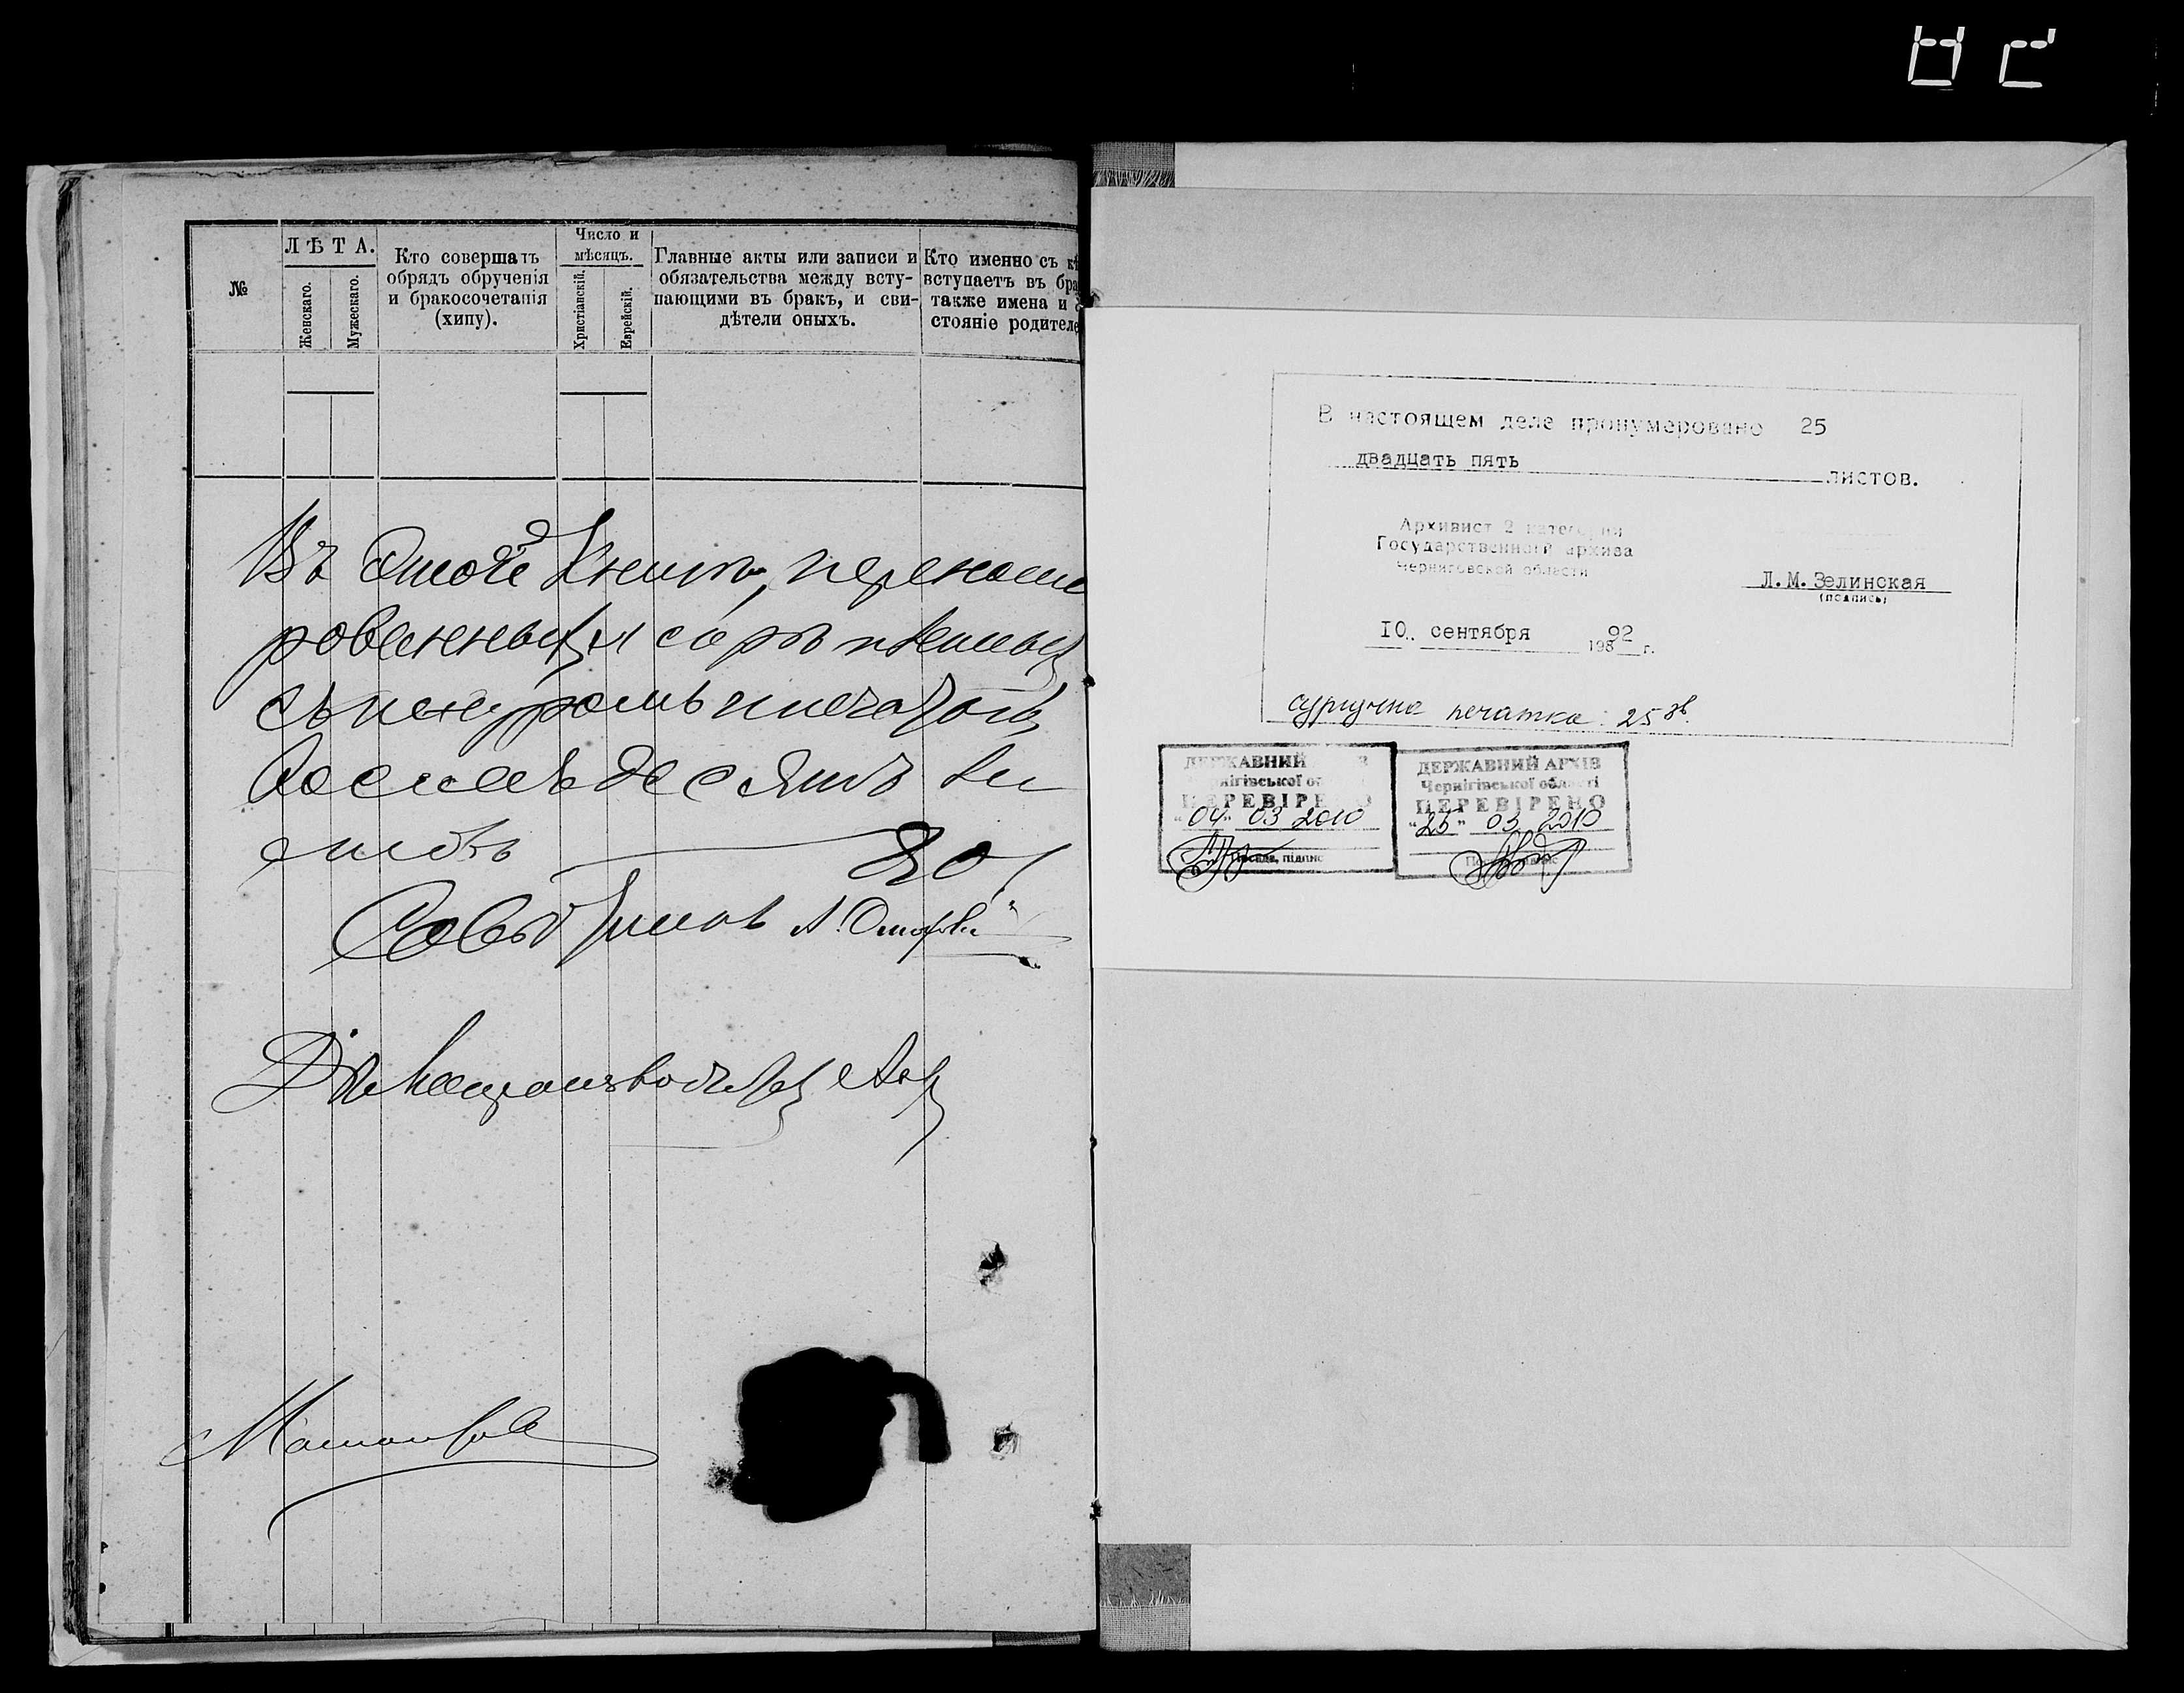 №
ЛѢТА.
Женскаго.
Мужескаго.
Кто совершалъ
обрядъ обрученія
и бракосочетанія
(хипу).
Число и
мѣсяцъ.
Христіанскій.
Еврейскій.
Главные акты или записи и
обязательства между всту-
пающими въ бракъ, и сви-
дѣтели оныхъ.
Кто именно съ кѣ
вступаетъ въ бра
также имена и
стояніе родителе
Въ этой Книгѣ, перенуме
рованныхъ и
печатью
восемьдесятъ ли
стовъ 80
Совѣтникъ
Дѣлопроизводитель
В настоящем деле пронумеровано 25
двадцать пять листов.
Архивист 2 категории
Государственного архива
Черниговской области
Л.М.Зелинская
(подпись)
10.. сентября 198 92 г.
сургучна печатка: 25 зв.
ДЕРЖАВНИЙ В
нігівської об
ПЕРЕВІРЕНО
"04" 03 2010
Посада, підпис
ДЕРЖАВНИЙ АРХІВ
Чернігівської області
ПЕРЕВІРЕНО
"25" 03 2010